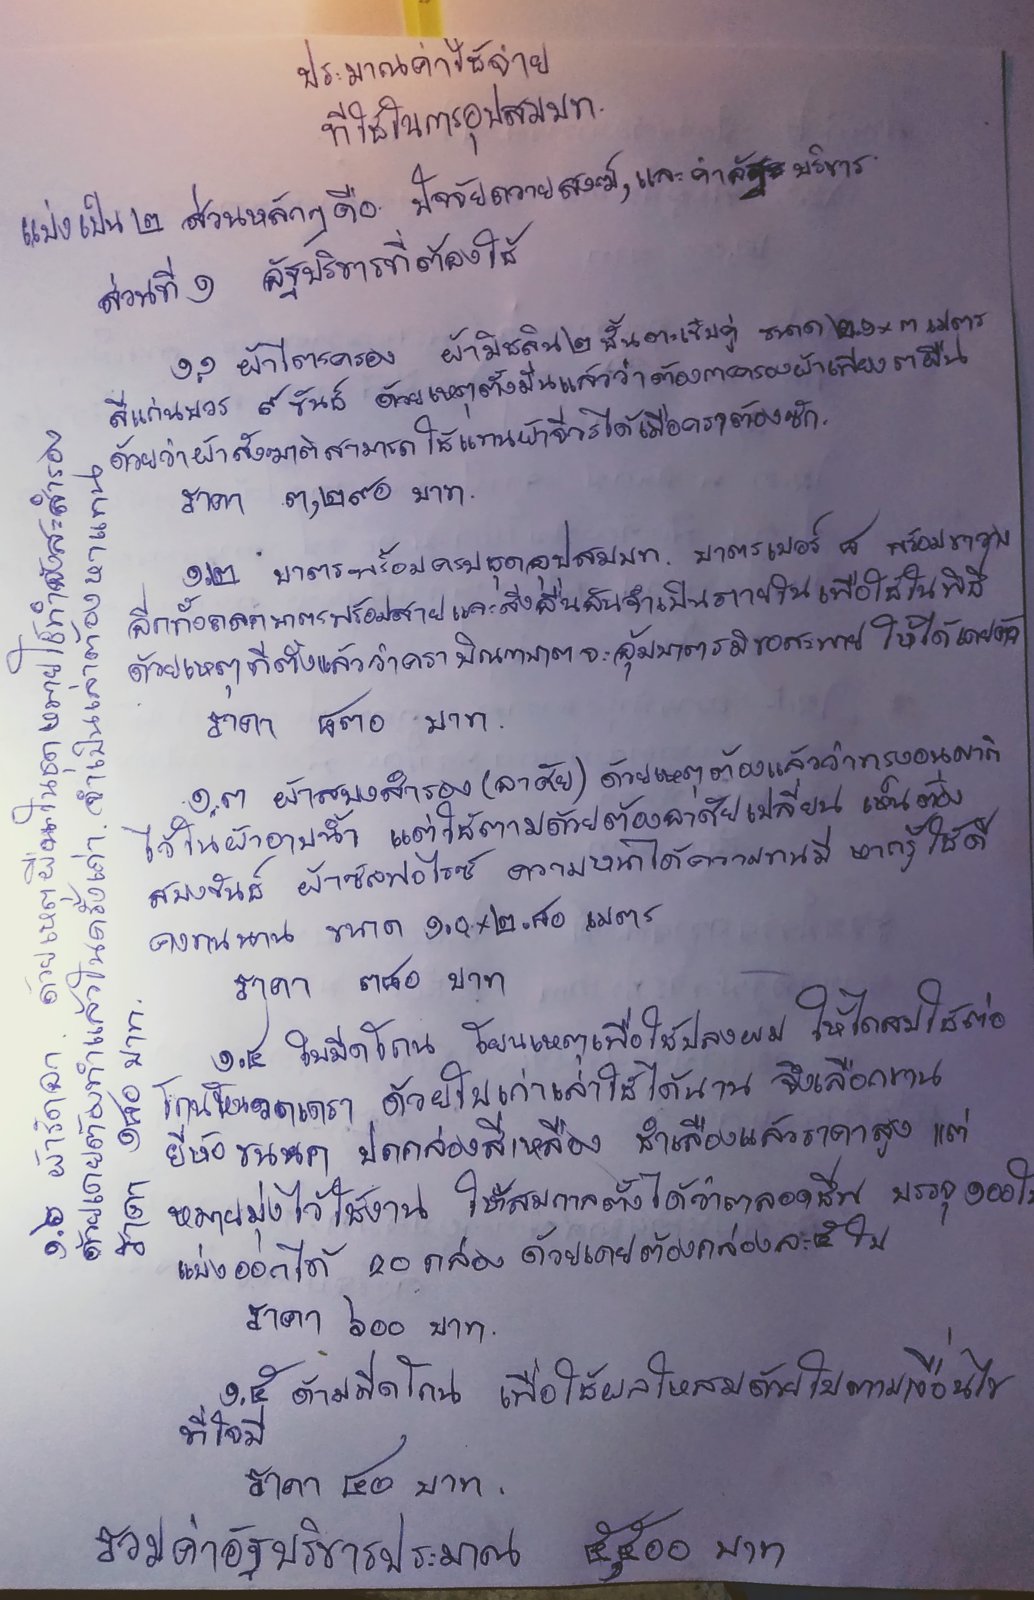 ประมาณค่าใช้จ่าย
ที่ใช้ในการอุปสมบท.
แบ่งเป็น ๒ ส่วนหลักๆ คือ ปัจจัยถวายสงฆ์, และ ค่าอัฐบริขาร
ส่วนที่ ๑ อัฐบริขารที่ต้องใช้
๑.๑ ผ้าไตรครอง ผ้ามิชลิน ๒ ชั้นตะเข็บคู่ ขนาด ๒.๑ x ๓ เมตร
สีแก่นบวร ๙ ขันธ์ ด้วยเหตุตั้งมั่นแล้วว่าต้องการครองผ้าเพียง ๓ ผืน
ด้วยว่าผ้าสังฆาติสามารถใช้แทนผ้าจีวรได้เมื่อคราต้องซัก.
ราคา ๓,๒๙๐ บาท.
๑.๒ บาตรพร้อมครบชุดอุปสมบท. บาตรเบอร์ ๘ พร้อมขาวาง
อีกทั้งถลกบาตรพร้อมสายและสิ่งอื่นอันจำเป็นภายในเพื่อใช้ในพิธี
ด้วยเหตุที่ตั้งแล้วว่าคราบิณฑบาตจะอุ้มบาตรมิขอสะพาย ให้ได้เคยตัว
ราคา ๘๓๐ บาท.
๑.๓ ผ้าสบงสำรอง (อาศัย) ด้วยเหตุต้องแล้วว่าทรงอนุญาติ
ไว้ในผ้าอาบน้ำ แต่ใช้ตามด้วยต้องอาศัยเปลี่ยน เห็นต้อง
สบงขันธ์ ผ้าซันฟอไรซ์ ความหนาได้ความทนมี หากรู้ใช้ดี
คงทนนาน ขนาด x ๒.๘๐ เมตร
ราคา ๓๘๐ บาท
๑.๔ ใบมีดโกน โยนเหตุเพื่อใช้ปลงผม ให้ได้สบใช้ต่อ
โกนหนวดเครา ด้วยใบเก่าเล่าใช้ได้นาน จึงเลือกขาน
ยี่ห้อขนนก ปกกล่องสีเหลือง ชำเลืองแล้วราคาสูง แต่
หมายมุ่งไว้ใช้งาน ให้สมกาลตั้งได้ว่าตลอดชีพ บรรจุ ๑๐๐ ใบ
แบ่งออกได้ ๒๐ กล่อง ด้วยเคยต้องกล่องละ ๕ ใบ
ราคา ๖๐๐ บาท.
๑.๕ ด้ามมีดโกน เพื่อใช้ผลให้สมด้วยใบตามเงื่อนไข
ที่ใจมี
ราคา ๘๐ บาท.
รวมค่าอัฐบริขารประมาณ บาท
๑.๖ ผ้ารัดอก. ด้วยเหตุผืนในชุดหมายใช้ทำอังสะสำรอง
ด้วยเคยต้องทำแล้วในครั้งเก่า. จำเป็นเล่าต้องหาแทน
ราคา ๑๘๐ บาท.